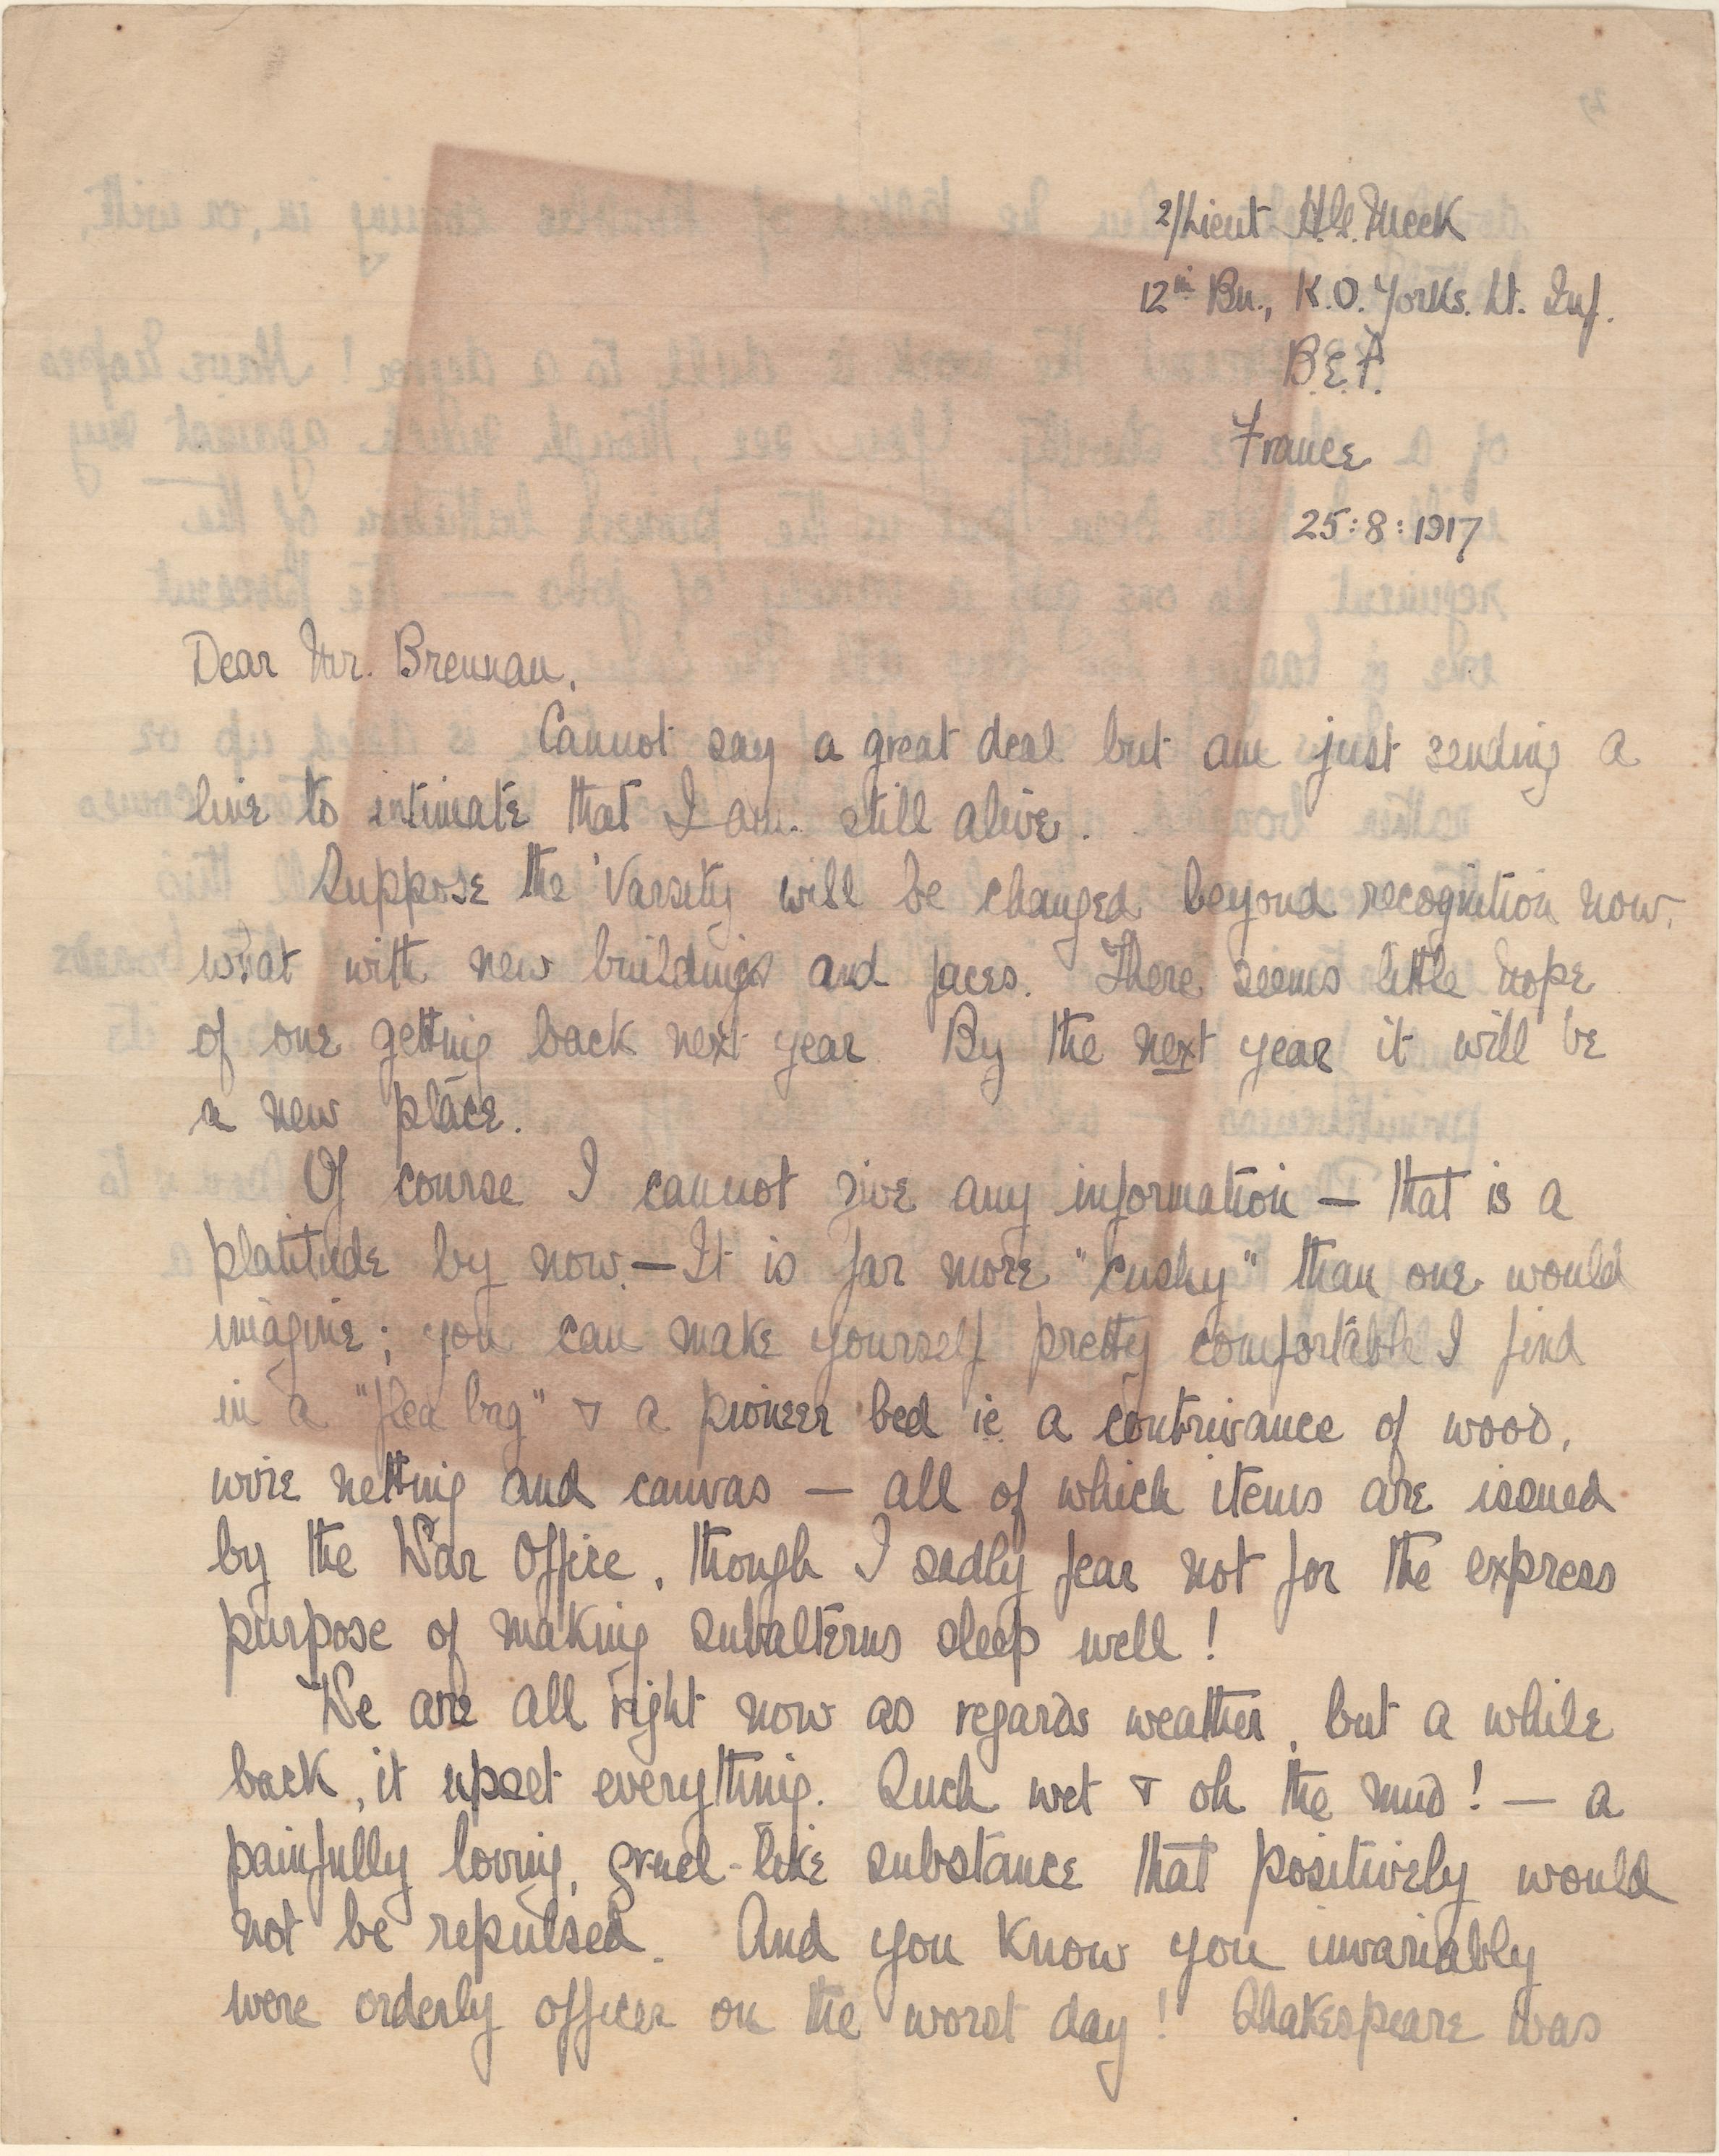 2/Lieut H.G. Meek
12th Bn., K.O. Yorks. Lt. Inf.
B.E.F.
France
25:8:1917
Dear Mr. Brennan,
Cannot say a great deal but am just sending a
line to intimate that I am still alive.
Suppose the 'Varsity will be changed beyond recognition now,
what with new buildings and faces. There seems little hope
of one getting back next year. By the next year it will be
a new place.
Of course I cannot give any information — that is a
platitude by now. — It is far more "cushy" than one would
imagine; you can make yourself pretty comfortable I find
in a "flea bag" & a pioneer bed ie a contrivance of wood,
wire netting and canvas — all of which items are issued
by the War Office, though I sadly fear not for the express
purpose of making subalterns sleep well!
We are all right now as regards weather, but a while
back, it upset everything. Such wet & oh the mud! — a
painfully loving, gruel-like substance that positively would
not be repulsed. And you know you invariably
were orderly officer on the worst day! Shakespeare was